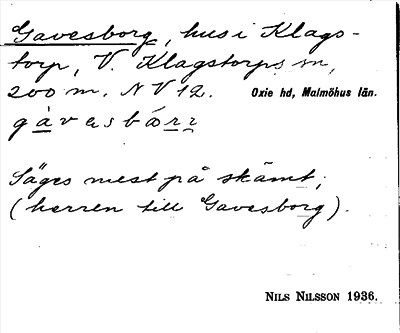 Gavesborg, hus i Klags-
torp, V. Klagstorps sn,
200 m. NV 12. Oxie hd, Malmöhus län.
gàvasbórr
Säges mest på skämt;
(herren till Gavesborg).
NILS NILSSON 1936.